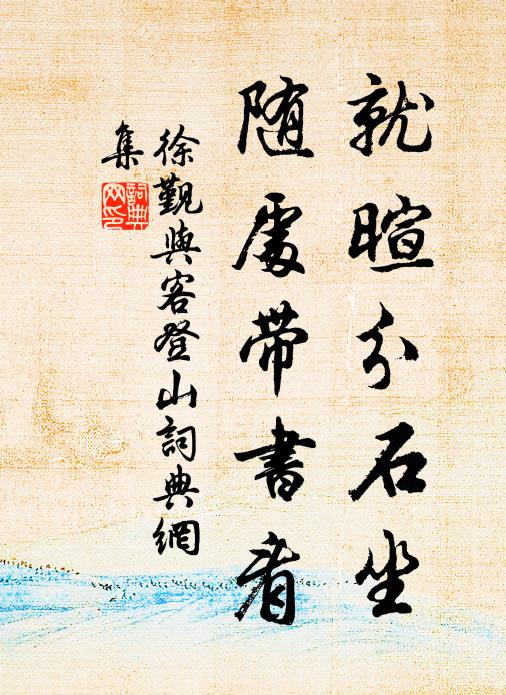 就暄分石坐
随處带書看
徐觐與客登山詞典網
集
詞典網印